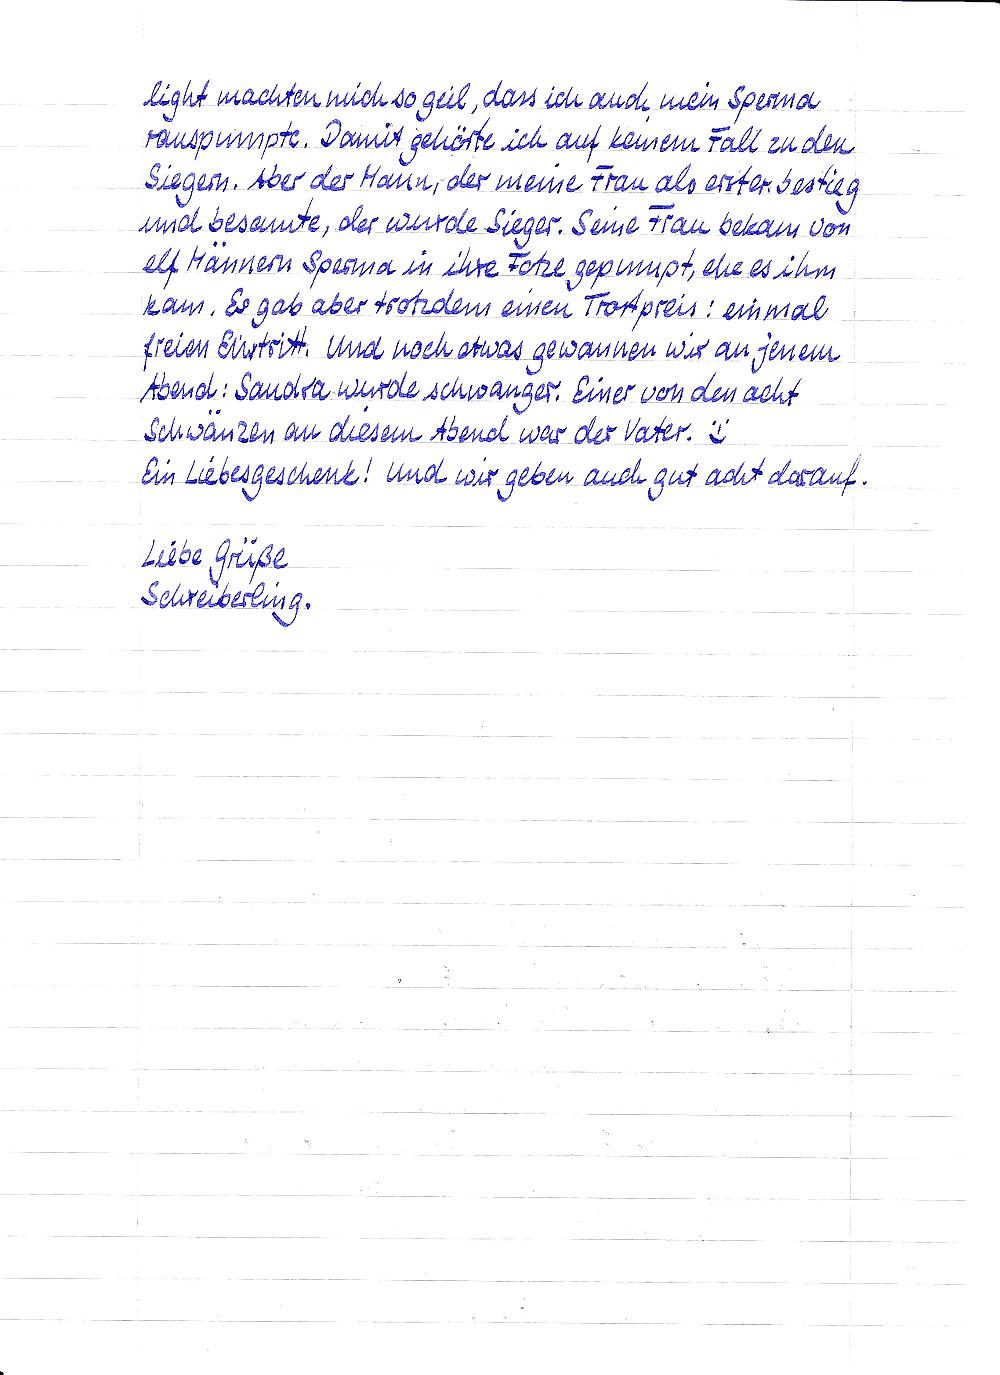 light machten mich so geil, dass ich auch mein Sperma
rauspumpte. Damit gehörte ich auf keinem Fall zu den
Siegern. Aber der Mann, der meine Frau als erster bestieg
und besamte, der wurde Sieger. Seine Frau bekam von
elf Männern Sperma in ihre Fotze gepumpt, ehe es ihm
kam. Es gab aber trotzdem einen Trostpreis: einmal
freien Eintritt. Und noch etwas gewannen wir an jenem
Abend: Sandra wurde schwanger. Einer von den acht
Schwänzen an diesem Abend war der Vater. :)
Ein Liebesgeschenk! Und wir geben auch gut acht darauf.
Liebe Grüße
Schreiberling.